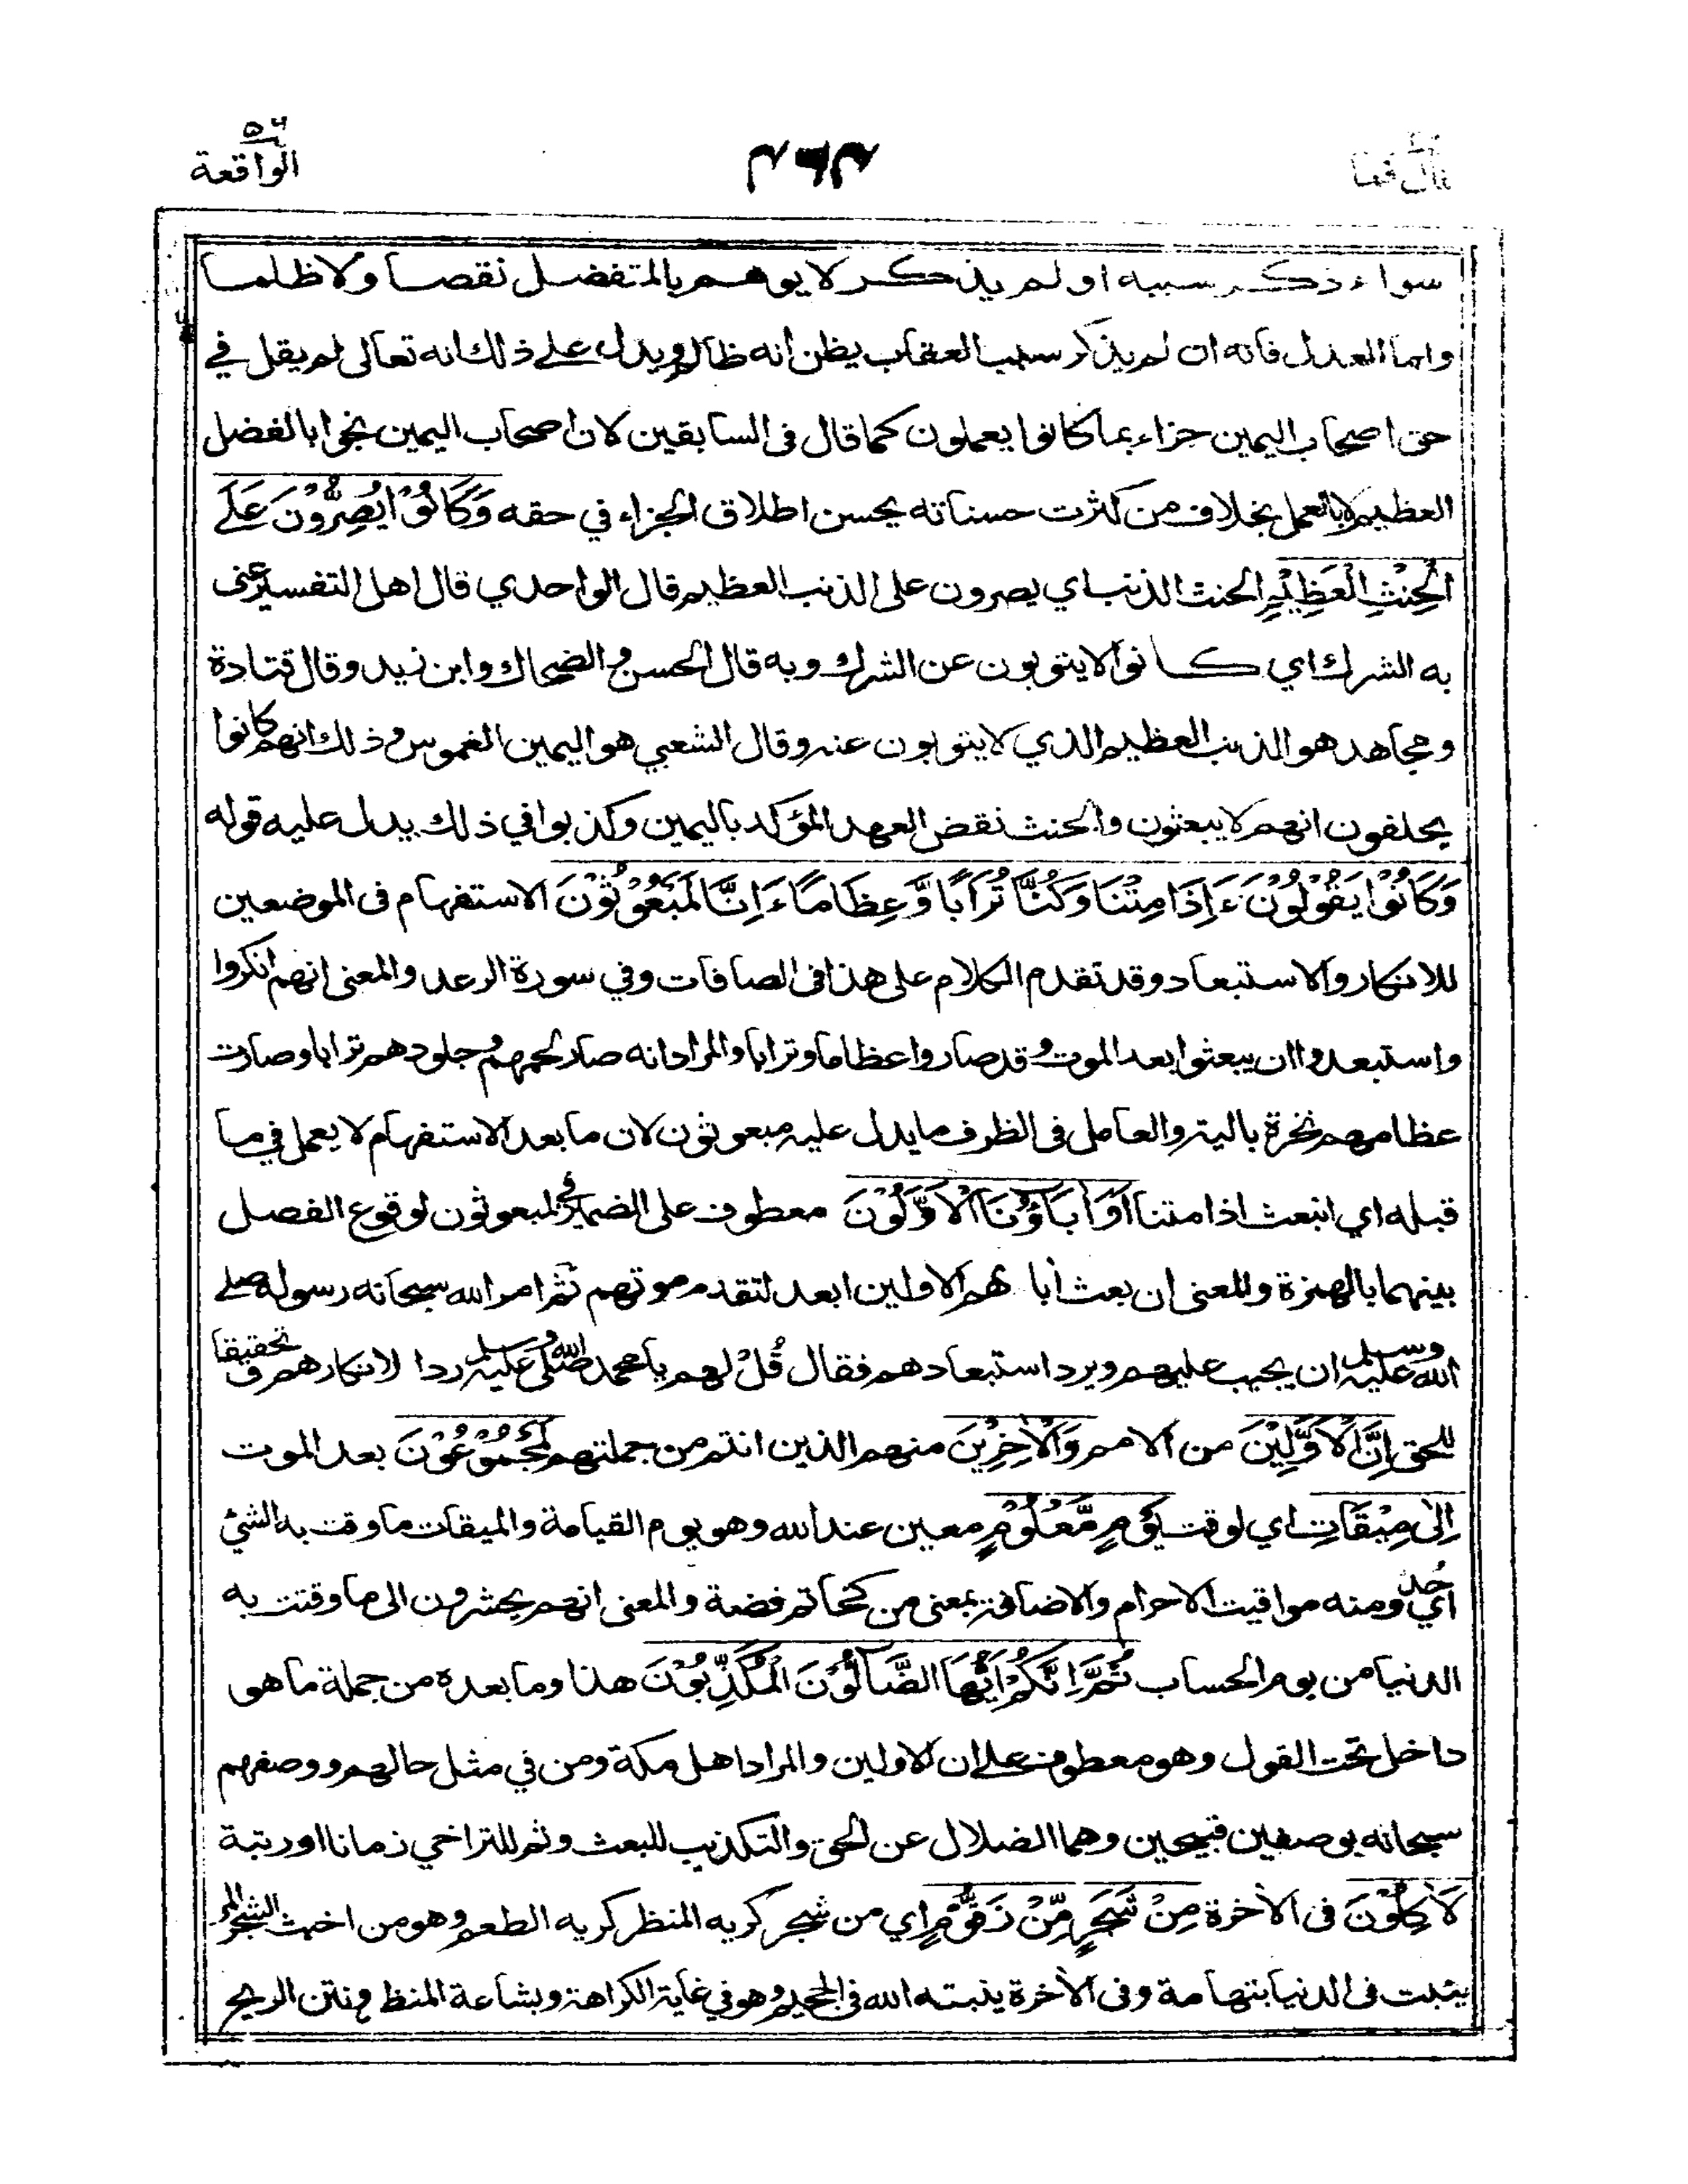 قال فما
الواقعة
٥٦
سواء ذكر سببه او لم يذكر لا يوهم بالمتفضل نقصا ولا ظلما
واما العدل فانه ان لم يذكر سبب العقاب يظن انه ظالم ويدل على ذلك انه تعالى لم يقل في
حق اصحاب اليمين جزاء بما كانوا يعملون كما قال فى السابقين لان اصحاب اليمين نجوا بالفضل
العظيم لا بالعمل بخلاف من كثرت حسناته يحسن اطلاق الجزاء في حقه وَكَانُوْا يُصِرُّوْنَ عَلَى
الْحِنْثِ الْعَظِيْمِ الحنث الذنب اي يصرون على الذنب العظيم قال الواحدي قال اهل التفسير عنى
به الشرك اي كانوا لا يتوبون عن الشرك وبه قال الحسن والضحاك وابن زيد وقال قتادة
ومجاهد هو الذنب العظيم الذي لا يتوبون عنه وقال الشعبي هو اليمين الغموس وذلك انهم كانوا
يحلفون انهم لا يبعثون والحنث نقض العهد المؤكد باليمين وكذبوا في ذلك يدل عليه قوله
وَكَانُوْا يَقُوْلُوْنَ ءَاِذَا مِتْنَا وَكُنَّا تُرَابًا وَّعِظَامًا ءَاِنَّا لَمَبْعُوْثُوْنَ الاستفهام فى الموضعين
للانكار والاستبعاد وقد تقدم الكلام على هذا فى الصافات وفي سورة الرعد والمعنى انهم انكروا
واستبعدوا ان يبعثوا بعد الموت وقد صاروا عظاما وترابا والمراد انه صار لحمهم وجلودهم ترابا وصارت
عظامهم نخرة بالية والعامل فى الظرف ما يدل عليه مبعوثون لان ما بعد الاستفهام لا يعمل في ما
قبله اي انبعث اذا متنا اَوَاٰبَاؤُنَا الْاَوَّلُوْنَ معطوف على الضمير في لمبعوثون لوقوع الفصل
بينهما بالهمزة والمعنى ان بعث ابائهم الاولين ابعد لتقدم موتهم ثم امر الله سبحانه رسوله صلى
الله عليه وسلم ان يجيب عليهم ويرد استبعادهم فقال قُلْ لهم يا محمد صلى الله عليه وسلم ردا لانكارهم وتحقيقا
للحق اِنَّ الْاَوَّلِيْنَ من الامم وَالْاٰخِرِيْنَ منهم الذين انتم من جملتهم لَمَجْمُوْعُوْنَ بعد الموت
اِلٰى مِيْقَاتِ اي لوقت يَوْمٍ مَّعْلُوْمٍ معين عند الله وهو يوم القيامة والميقات ما وقت به الشئ
اي حد ومنه مواقيت الاحرام والاضافة بمعنى من كخاتم فضة والمعنى انهم يحشرون الى ما وقتت به
الدنيا من يوم الحساب ثُمَّ اِنَّكُمْ اَيُّهَا الضَّآلُّوْنَ الْمُكَذِّبُوْنَ هذا وما بعده من جملة ما هو
داخل تحت القول وهو معطوف على ان الاولين والمراد اهل مكة ومن في مثل حالهم ووصفهم
سبحانه بوصفين قبيحين وهما الضلال عن الحق والتكذيب للبعث وثم للتراخي زمانا او رتبة
لَاٰكِلُوْنَ فى الاٰخرة مِنْ شَجَرٍ مِّنْ زَقُّوْمٍ اي من شجر كريه المنظر كريه الطعم وهو من اخبث الشجر المر
ينبت فى الدنيا بتهامة وفى الاٰخرة ينبته الله فى الجحيم وهو في غاية الكراهة وبشاعة المنظر ونتن الريح